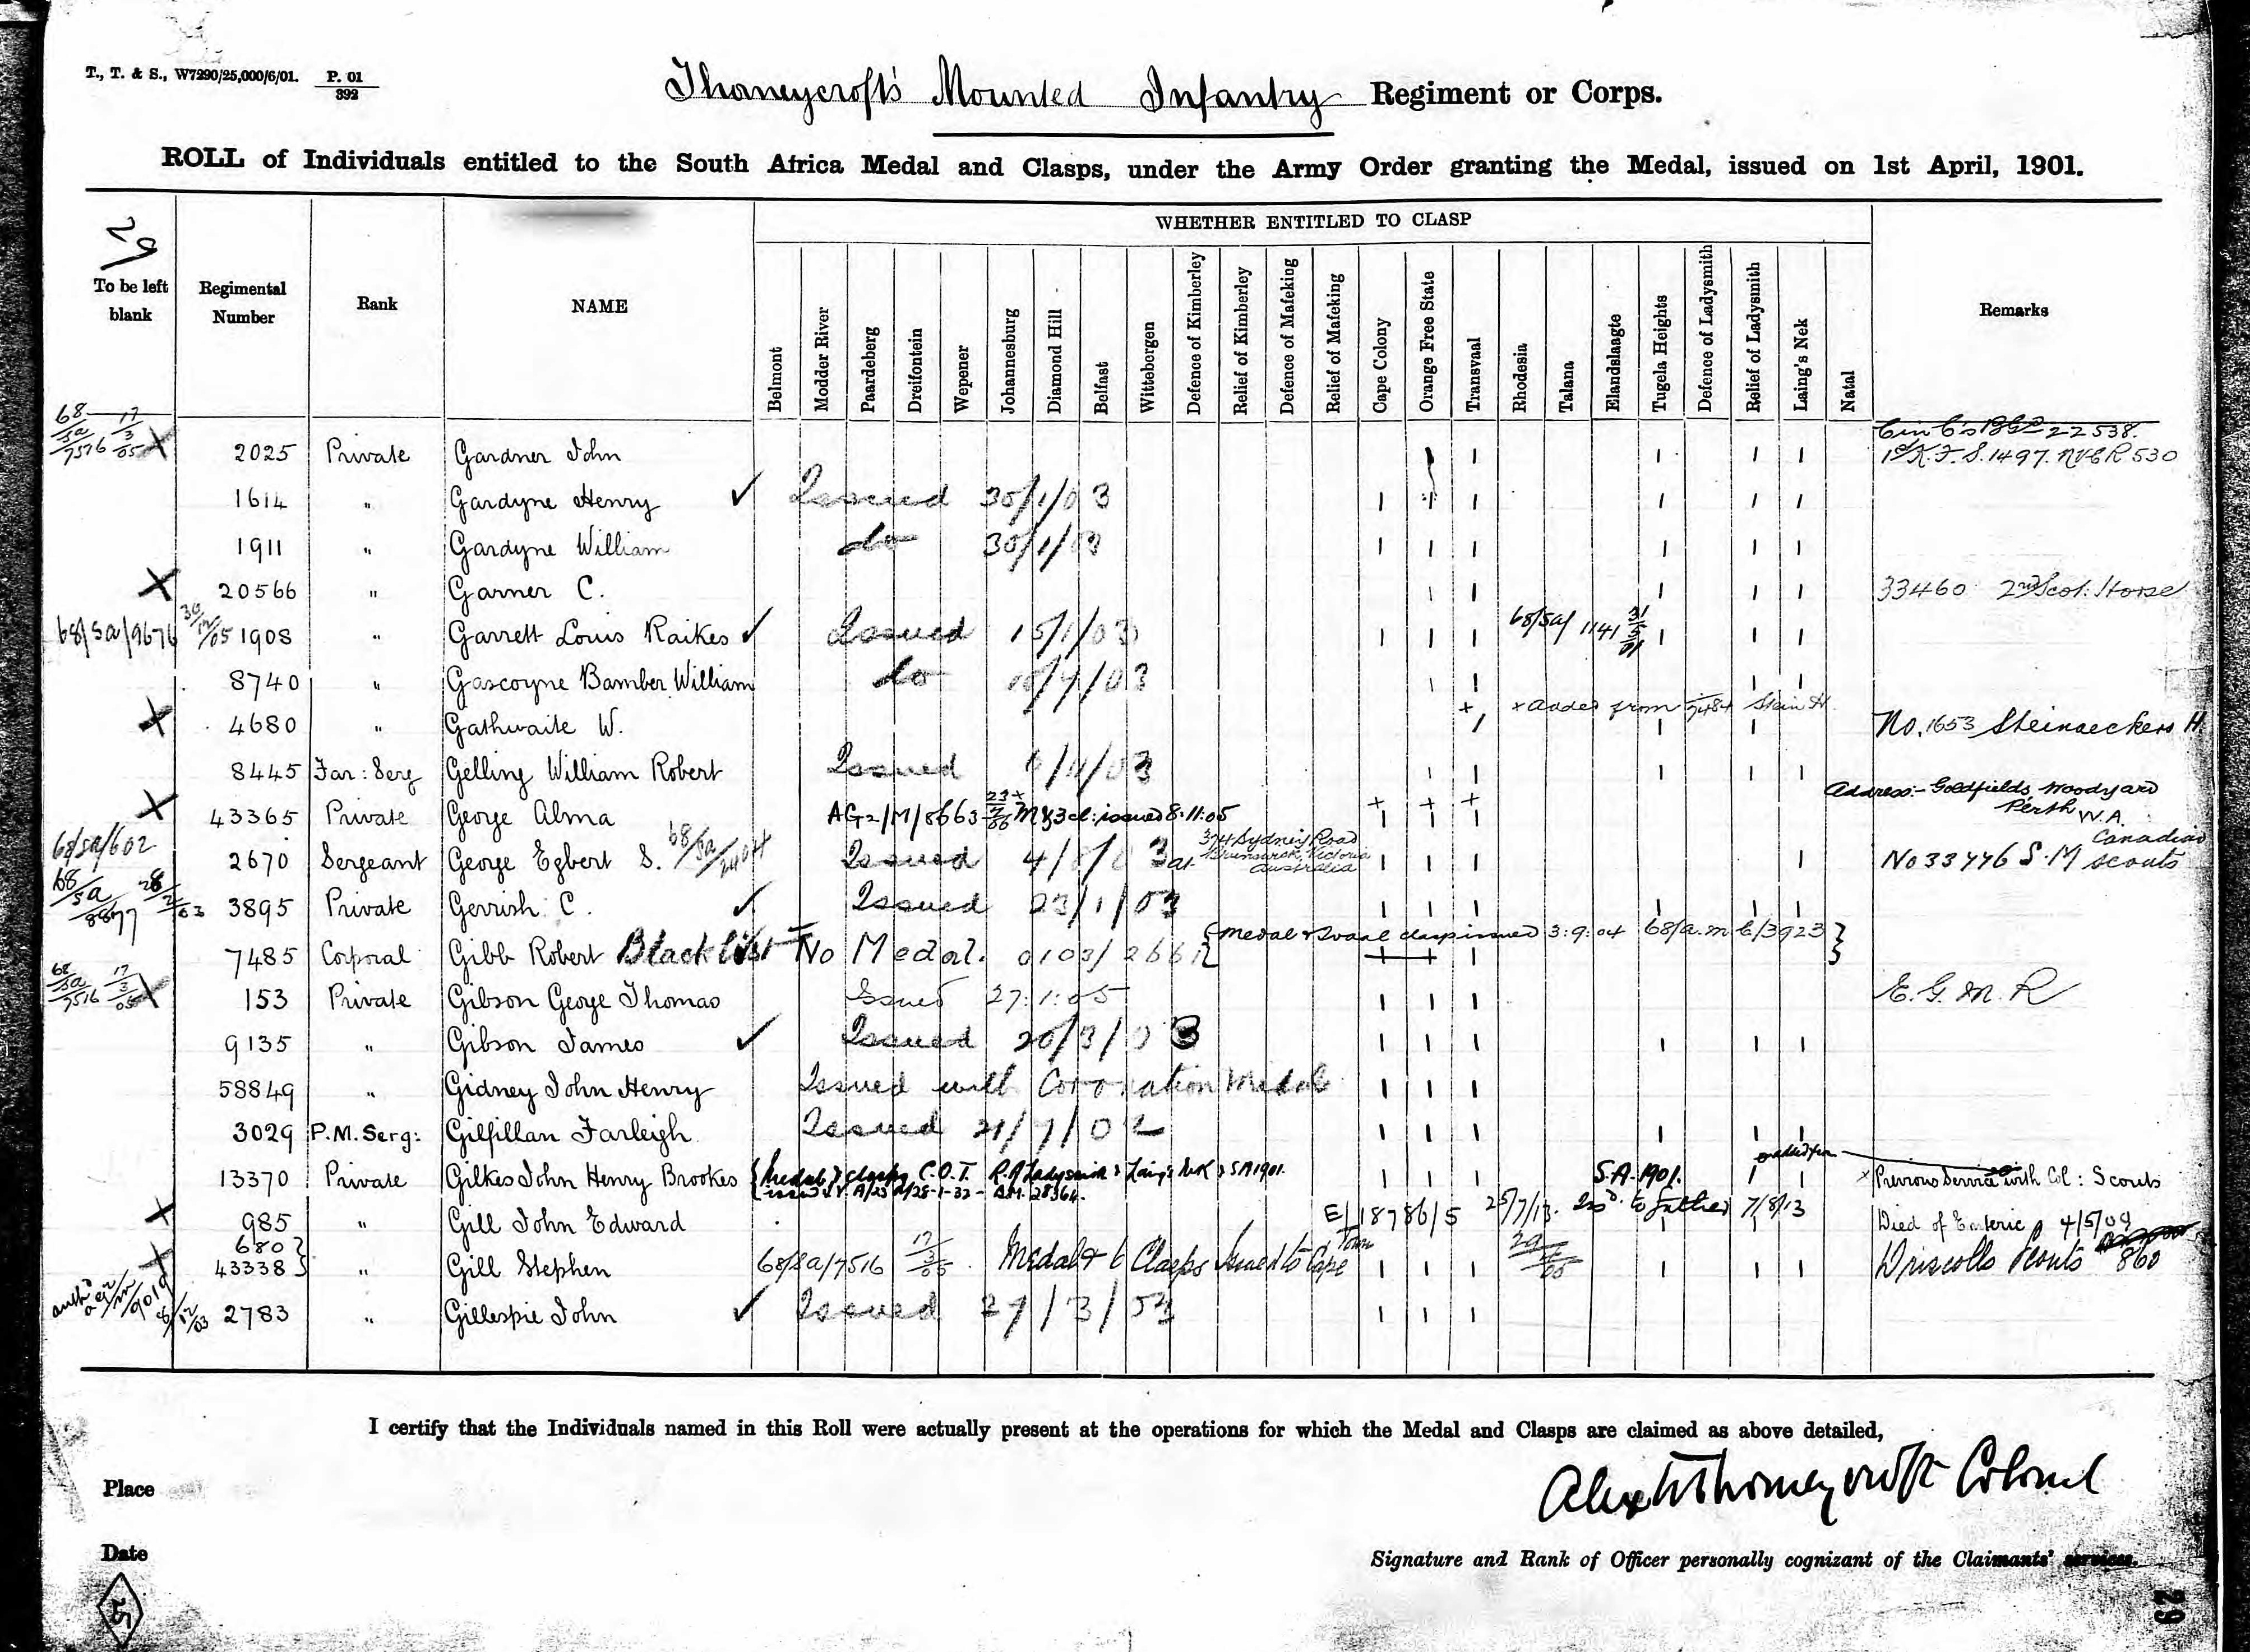 T., T. & S., W7290/25,000/6/01. P. 01/392
Thorneycroft's Mounted Infantry Regiment or Corps.
ROLL of Individuals entitled to the South Africa Medal and Clasps, under the Army Order granting the Medal, issued on 1st April, 1901.
29
To be left blank
Regimental Number
Rank
NAME
WHETHER ENTITLED TO CLASP
Belmont
Modder River
Paardeberg
Dreifontein
Wepener
Johannesburg
Diamond Hill
Belfast
Wittebergen
Defence of Kimberley
Relief of Kimberley
Defence of Mafeking
Relief of Mafeking
Cape Colony
Orange Free State
Transvaal
Rhodesia
Talana
Elandslaagte
Tugela Heights
Defence of Ladysmith
Relief of Ladysmith
Laing's Nek
Natal
Remarks
68/SA/7516 17/3/05 X 2025 Private Gardner John 22538. 1st K.F.S. 1497. 530
1614 " Gardyne Henry ✓ Issued 30/1/03
1911 " Gardyne William do 30/1/03
X 20566 " Garner C. 33460 2nd Scot: Horse
68/SA/9676 30/12/05 1908 " Garrett Louis Raikes ✓ Issued 15/1/03 68/SA/1141
8740 " Gascoyne Bamber William do /03
X 4680 " Gathwaite W. + + added from Stein H. No. 1653 Steinaeckers H.
8445 Far: Serg Gelling William Robert Issued /03
X 43365 Private George Alma AG2/M/8663 M & 3 cl: issued 8.11.05 + + + Address:- Goldfields Woodyard Perth W.A.
68/SA/602 2670 Sergeant George Egbert S. 68/SA/ Issued 4/ / 3 at 374 Sydney Road Brunswick, Victoria Australia No 33776 S.M Canadian Scouts
68/SA/8877 28/2/03 3895 Private Gerrish C. ✓ Issued 23/1/03
7485 Corporal Gibb Robert Black list No Medal. 0103/2661 {Medal & Tvaal clasp issued 3:9:04 68/a.m.b/3923}
68/SA/7516 17/3/05 X 153 Private Gibson George Thomas Issued 27:1:05 E.G.M.R
9135 " Gibson James ✓ Issued 20/3/03
58849 " Gidney John Henry Issued with Coronation Medal
3029 P.M. Serg: Gilfillan Farleigh Issued 21/7/02
13370 Private Gilkes John Henry Brookes {Medal & clasps C.O.T. R. of Ladysmith & Laings Nek & SA 1901. S.A. 1901. x Previous Service with Col: Scouts
X 985 " Gill John Edward E/18786/5 25/7/13. Isd. to father 7/8/13 Died of Enteric 4/5/00
X 680 } 43338 } " Gill Stephen 68/SA/7516 17/3/05. Medal & 6 Clasps Issued to Cape Town Driscolls Scouts 860
8/12/03 2783 " Gillespie John ✓ Issued 27/3/03
I certify that the Individuals named in this Roll were actually present at the operations for which the Medal and Clasps are claimed as above detailed,
Alex W Thorneycroft Colonel
Place
Date
Signature and Rank of Officer personally cognizant of the Claimants' services.
29